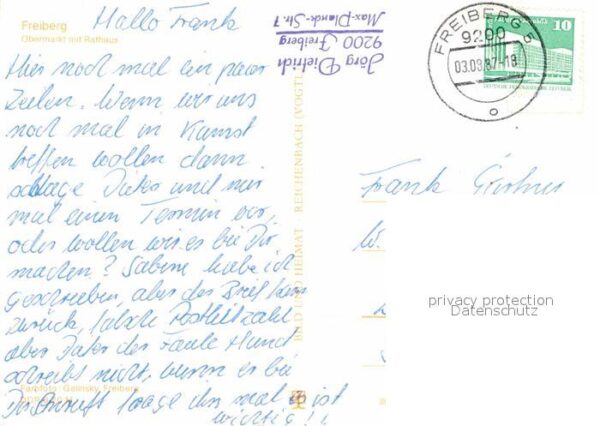 Freiberg
Obermarkt mit Rathaus
Hallo Frank
Hier noch mal ein paar
Zeilen. Wenn wir uns
noch mal in Kamst
treffen wollen dann
schlage Peter und mir
mal einen Termin vor,
oder wollen wir es bei Dir
machen? Sabine habe ich
geschrieben, aber der Brief kam
zurück, falsche Postleitzahl
aber Peter der faule Hund
schreibt nicht, wenn es bei
Dir frage ihn mal es ist
wichtig!!
Farbfoto: Galinsky, Freiberg
BILD UND HEIMAT REICHENBACH (VOGTL
Jörg Dietrich
9200 Freiberg
Max-Planck-Str. 7
FREIBERG 5
9200
03.09.87-18
o
10
DEUTSCHE DEMOKRATISCHE REPUBLIK
Frank
W.
privacy protection
Datenschutz